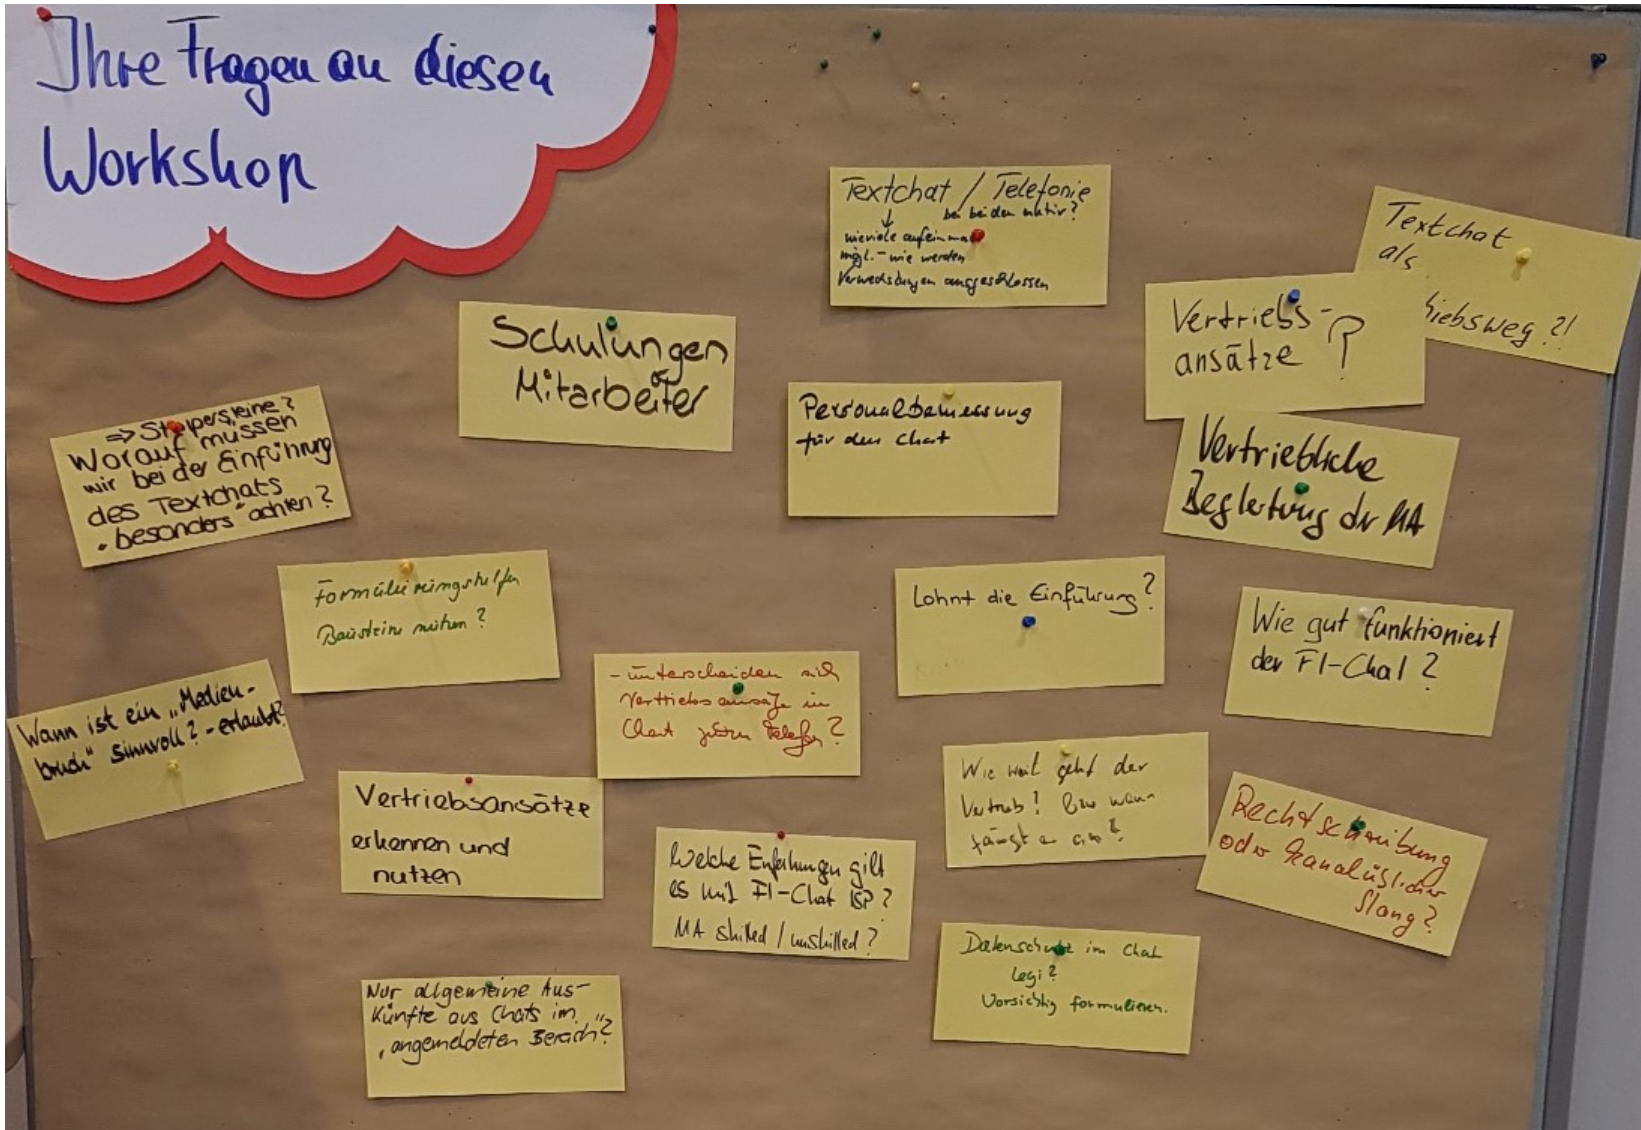 Ihre Fragen an diesen
Workshop
Textchat / Telefonie
bei beiden aktiv?
wieviele aufeinmal
mögl. - wie werden
Verwechslungen ausgeschlossen
Textchat
als
riebsweg ?!
Vertriebs-
ansätze ?
Schulungen
Mitarbeiter
Personalbemessung
für den Chat
Vertriebliche
Begleitung der MA
⇒ Stolpersteine?
Worauf müssen
wir bei der Einführung
des Textchats
"besonders" achten?
Formulierungshilfen
Bausteine nutzen?
Lohnt die Einführung?
Wie gut funktioniert
der FI-Chat?
- unterscheiden sich
Vertriebsansätze in
Chat zum Telefon?
Wann ist ein „Medien-
bruch" sinnvoll? - erlaubt?
Vertriebsansätze
erkennen und
nutzen
Wie weit geht der
Vertrieb? Bzw wann
fängt er an?
Rechtschreibung
oder kanalüblicher
Slang?
Welche Erfahrungen gibt
es mit FI-Chat ISP?
MA skilled / unskilled?
Datenschutz im Chat
Legi?
Vorsichtig formulieren.
Nur allgemeine Aus-
künfte aus Chats im
„angemeldeten Bereich"?